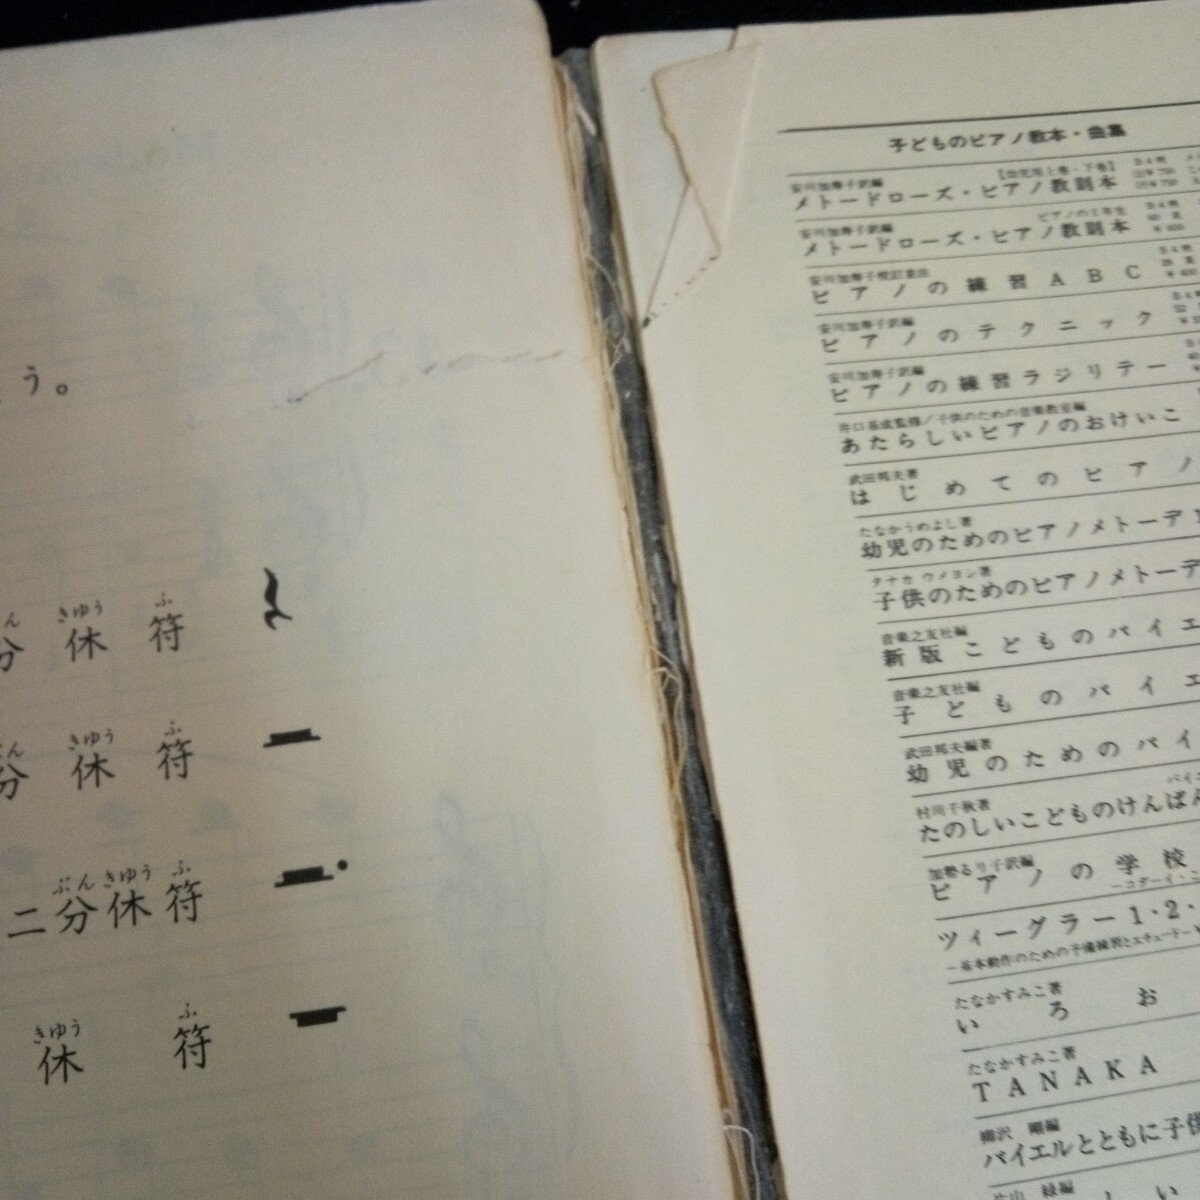 う。
分休符
きゅう ふ
分休符
きゅう ふ
二分休符
ぶんきゅう ふ
休符
きゅう ふ
子どものピアノ教本・曲集
安川加寿子訳編
【幼児用上巻・下巻】
メトードローズ・ピアノ教則本
安川加寿子訳編
ピアノの1年生
メトードローズ・ピアノ教則本
安川加寿子校訂
ピアノの練習ABC
安川加寿子訳編
ピアノのテクニック
安川加寿子訳編
ピアノの練習ラジリテー
井口基成監修/子供のための音楽教室編
あたらしいピアノのおけいこ
武田邦夫著
はじめてのピアノ
たなかうめよし著
幼児のためのピアノメトーデ
タナカ ウメヨシ著
子供のためのピアノメトーデ
音楽之友社編
新版こどものバイエ
音楽之友社編
子どものバイエ
武田邦夫編著
幼児のためのバイ
村川千秋著
たのしいこどものけんばん
加勢るり子訳編
ピアノの学校
ーコダーイ・
ツィーグラー1・2・
ー基本動作のための予備練習とエチュードー
たなかすみこ著
いろお
たなかすみこ著
TANAKA
柳沢 剛編
バイエルとともに子供
片山 緑編